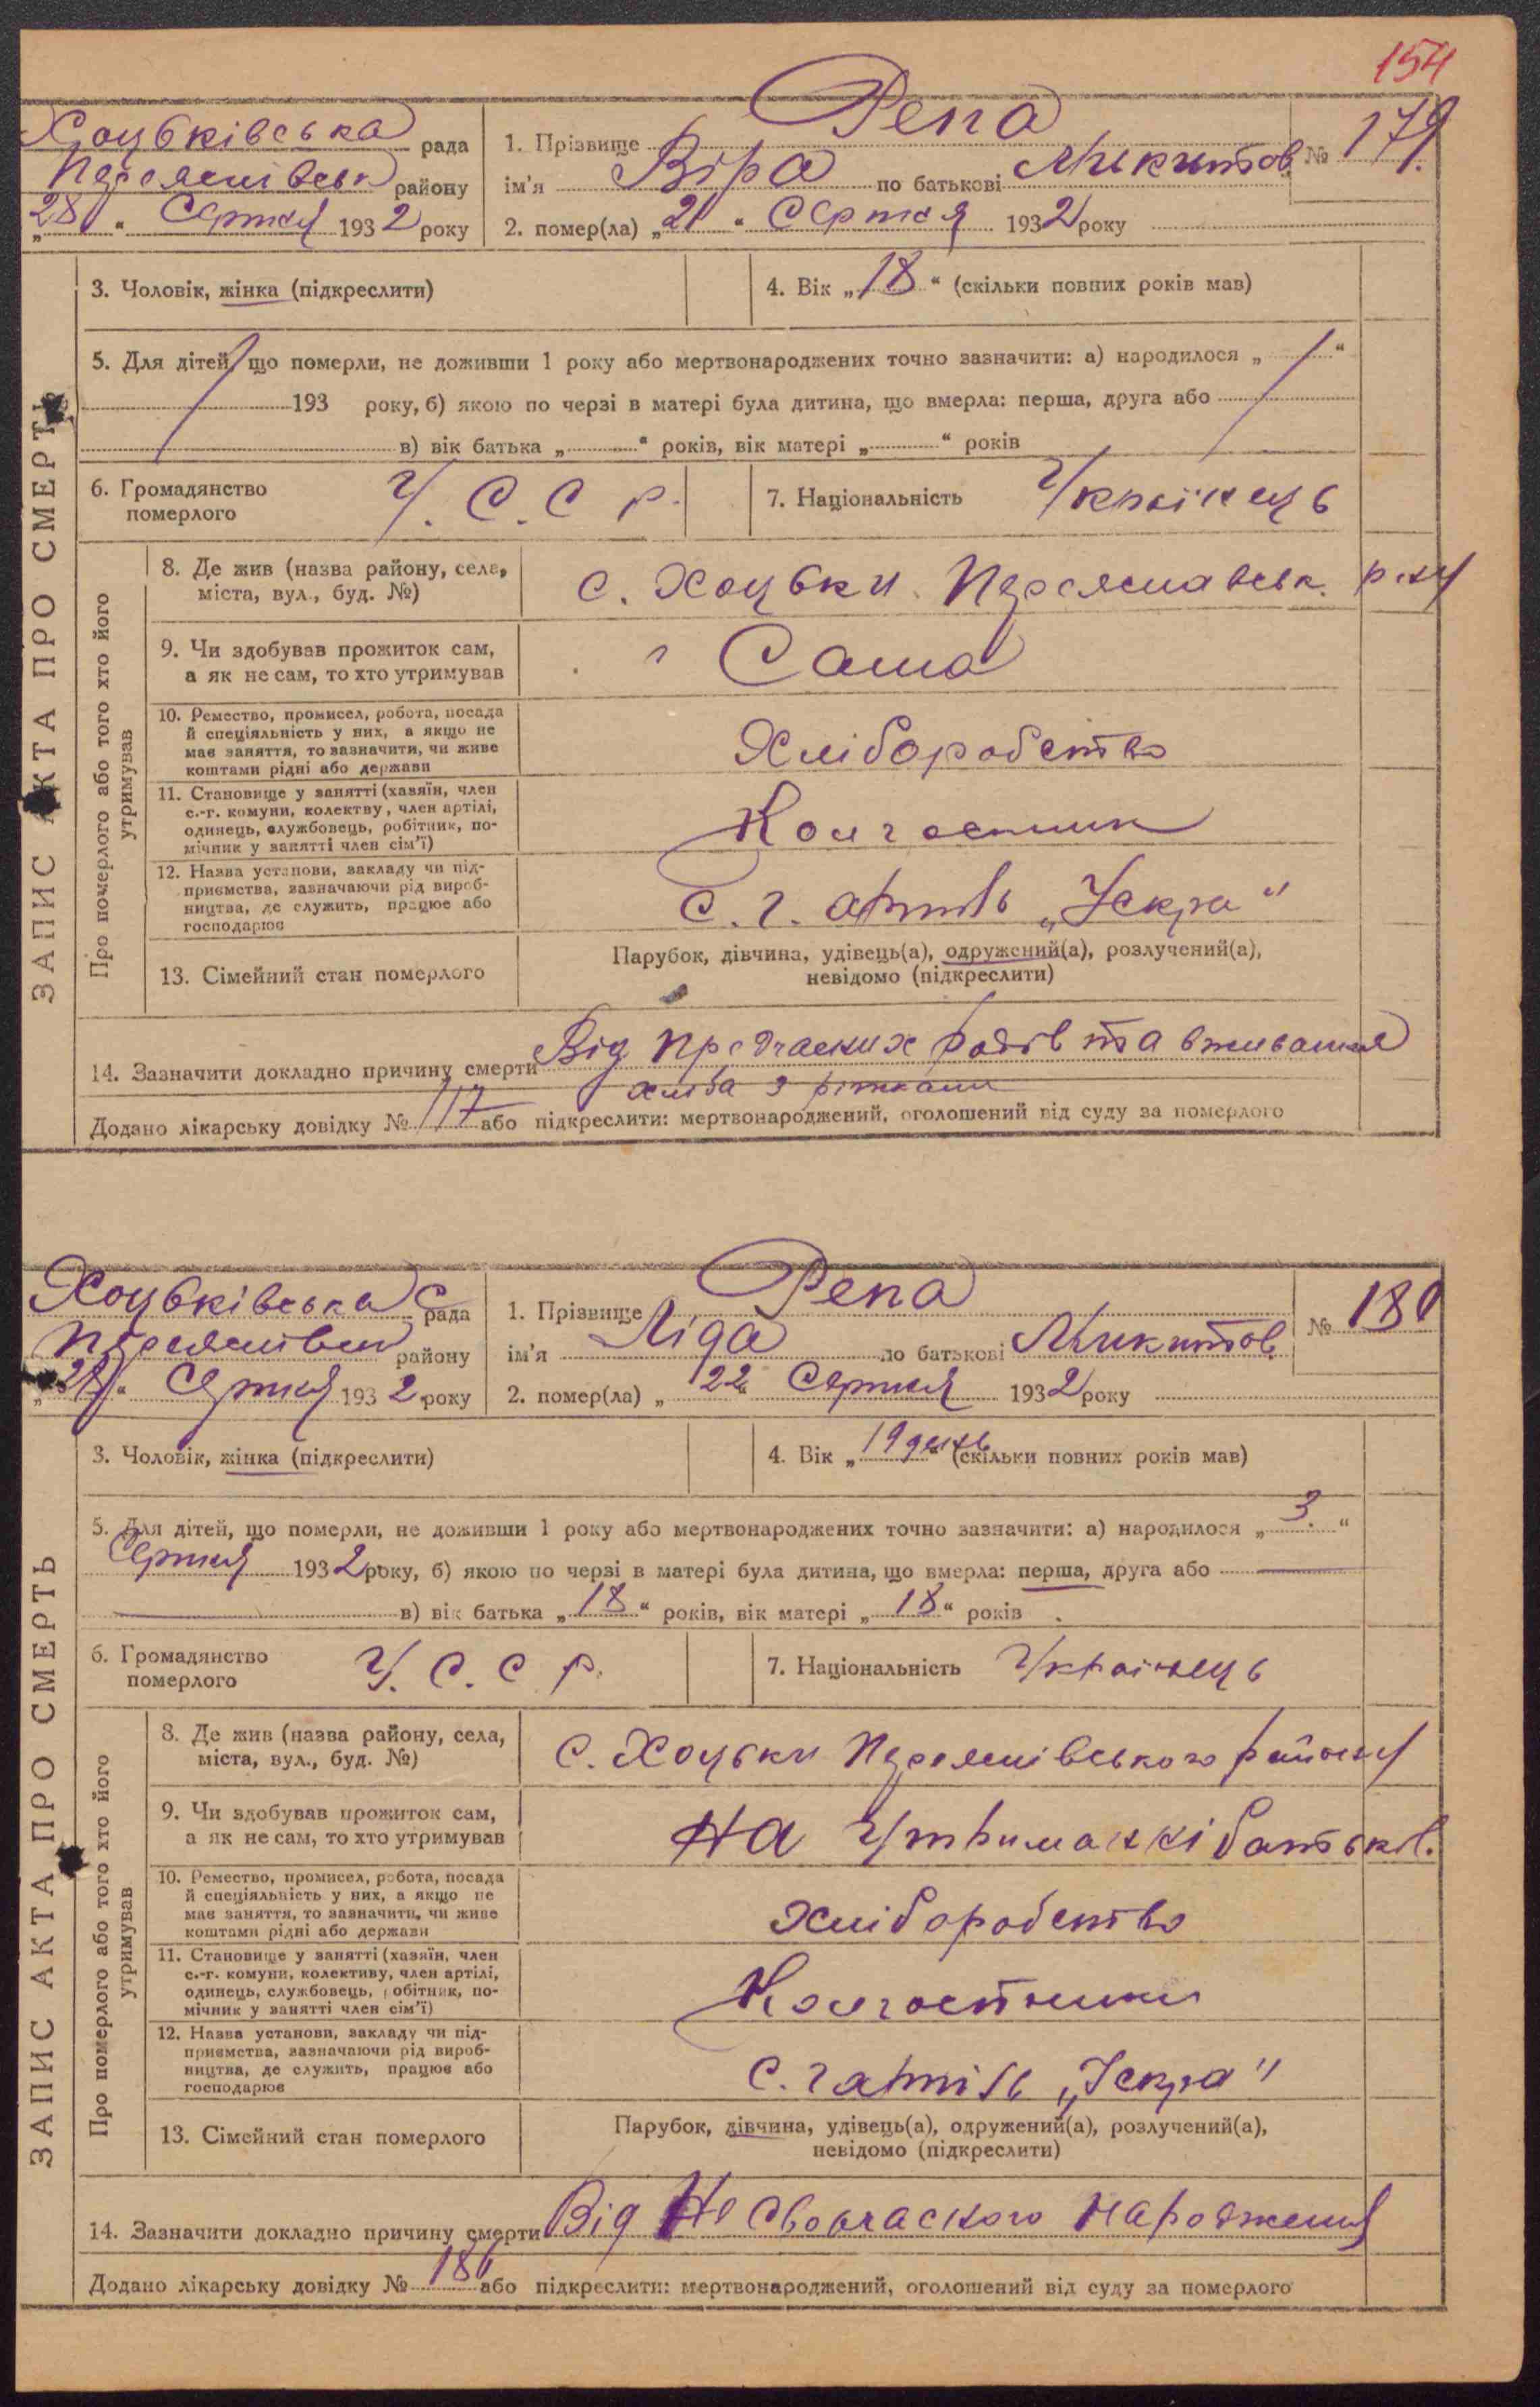 154
Хоцьківська рада
Переяслівськ району
„28“ Серпня 1932 року
1. Прізвище Репа
ім'я Віра по батькові Микитов.
№ 179.
2. помер(ла) „21“ Серпня 1932 року
ЗАПИС АКТА ПРО СМЕРТЬ
3. Чоловік, жінка (підкреслити)
4. Вік „18“ (скільки повних років мав)
5. Для дітей, що померли, не доживши 1 року або мертвонароджених точно зазначити: а) народилося „ “
193 року, б) якою по черзі в матері була дитина, що вмерла: перша, друга або
в) вік батька „ “ років, вік матері „ “ років
6. Громадянство
померлого
У. С. С. Р.
7. Національність Українець
Про померлого або того хто його
утримував
8. Де жив (назва району, села,
міста, вул., буд. №)
с. Хоцьки Переяславськ. р-ну
9. Чи здобував прожиток сам,
а як не сам, то хто утримував
Сама
10. Ремество, промисел, робота, посада
й спеціяльність у них, а якщо не
має заняття, то зазначити, чи живе
коштами рідні або держави
Хліборобство
11. Становище у занятті (хазяїн, член
с.-г. комуни, колектву, член артілі,
одинець, службовець, робітник, по-
мічник у занятті член сім'ї)
Колгоспник
12. Назва установи, закладу чи під-
приємства, зазначаючи рід вироб-
ництва, де служить, працює або
господарює
С. г. артіль „Іскра“
13. Сімейний стан померлого
Парубок, дівчина, удівець(а), одружений(а), розлучений(а),
невідомо (підкреслити)
14. Зазначити докладно причину смерти Від предчасних родів та вживання
хліба з ріжками
Додано лікарську довідку № 117 або підкреслити: мертвонароджений, оголошений від суду за померлого
Хоцьківська С рада
Переяслівськ району
„28“ Серпня 1932 року
1. Прізвище Репа
ім'я Ліда по батькові Микитов.
№ 180
2. помер(ла) „22“ Серпня 1932 року
ЗАПИС АКТА ПРО СМЕРТЬ
3. Чоловік, жінка (підкреслити)
4. Вік „19 день“ (скільки повних років мав)
5. Для дітей, що померли, не доживши 1 року або мертвонароджених точно зазначити: а) народилося „3.“
Серпня 1932 року, б) якою по черзі в матері була дитина, що вмерла: перша, друга або
в) вік батька „18“ років, вік матері „18“ років
6. Громадянство
померлого
У. С. С. Р.
7. Національність Українець
Про померлого або того хто його
утримував
8. Де жив (назва району, села,
міста, вул., буд. №)
С. Хоцьки Переяслівського району
9. Чи здобував прожиток сам,
а як не сам, то хто утримував
На утриманні батьків.
10. Ремество, промисел, робота, посада
й спеціяльність у них, а якщо не
має заняття, то зазначити, чи живе
коштами рідні або держави
Хліборобство
11. Становище у занятті (хазяїн, член
с.-г. комуни, колективу, член артілі,
одинець, службовець, робітник, по-
мічник у занятті член сім'ї)
Колгоспники
12. Назва установи, закладу чи під-
приємства, зазначаючи рід вироб-
ництва, де служить, працює або
господарює
С. г артіль „Іскра“
13. Сімейний стан померлого
Парубок, дівчина, удівець(а), одружений(а), розлучений(а),
невідомо (підкреслити)
14. Зазначити докладно причину смерти Від не своєчасного народження
Додано лікарську довідку № 180 або підкреслити: мертвонароджений, оголошений від суду за померлого